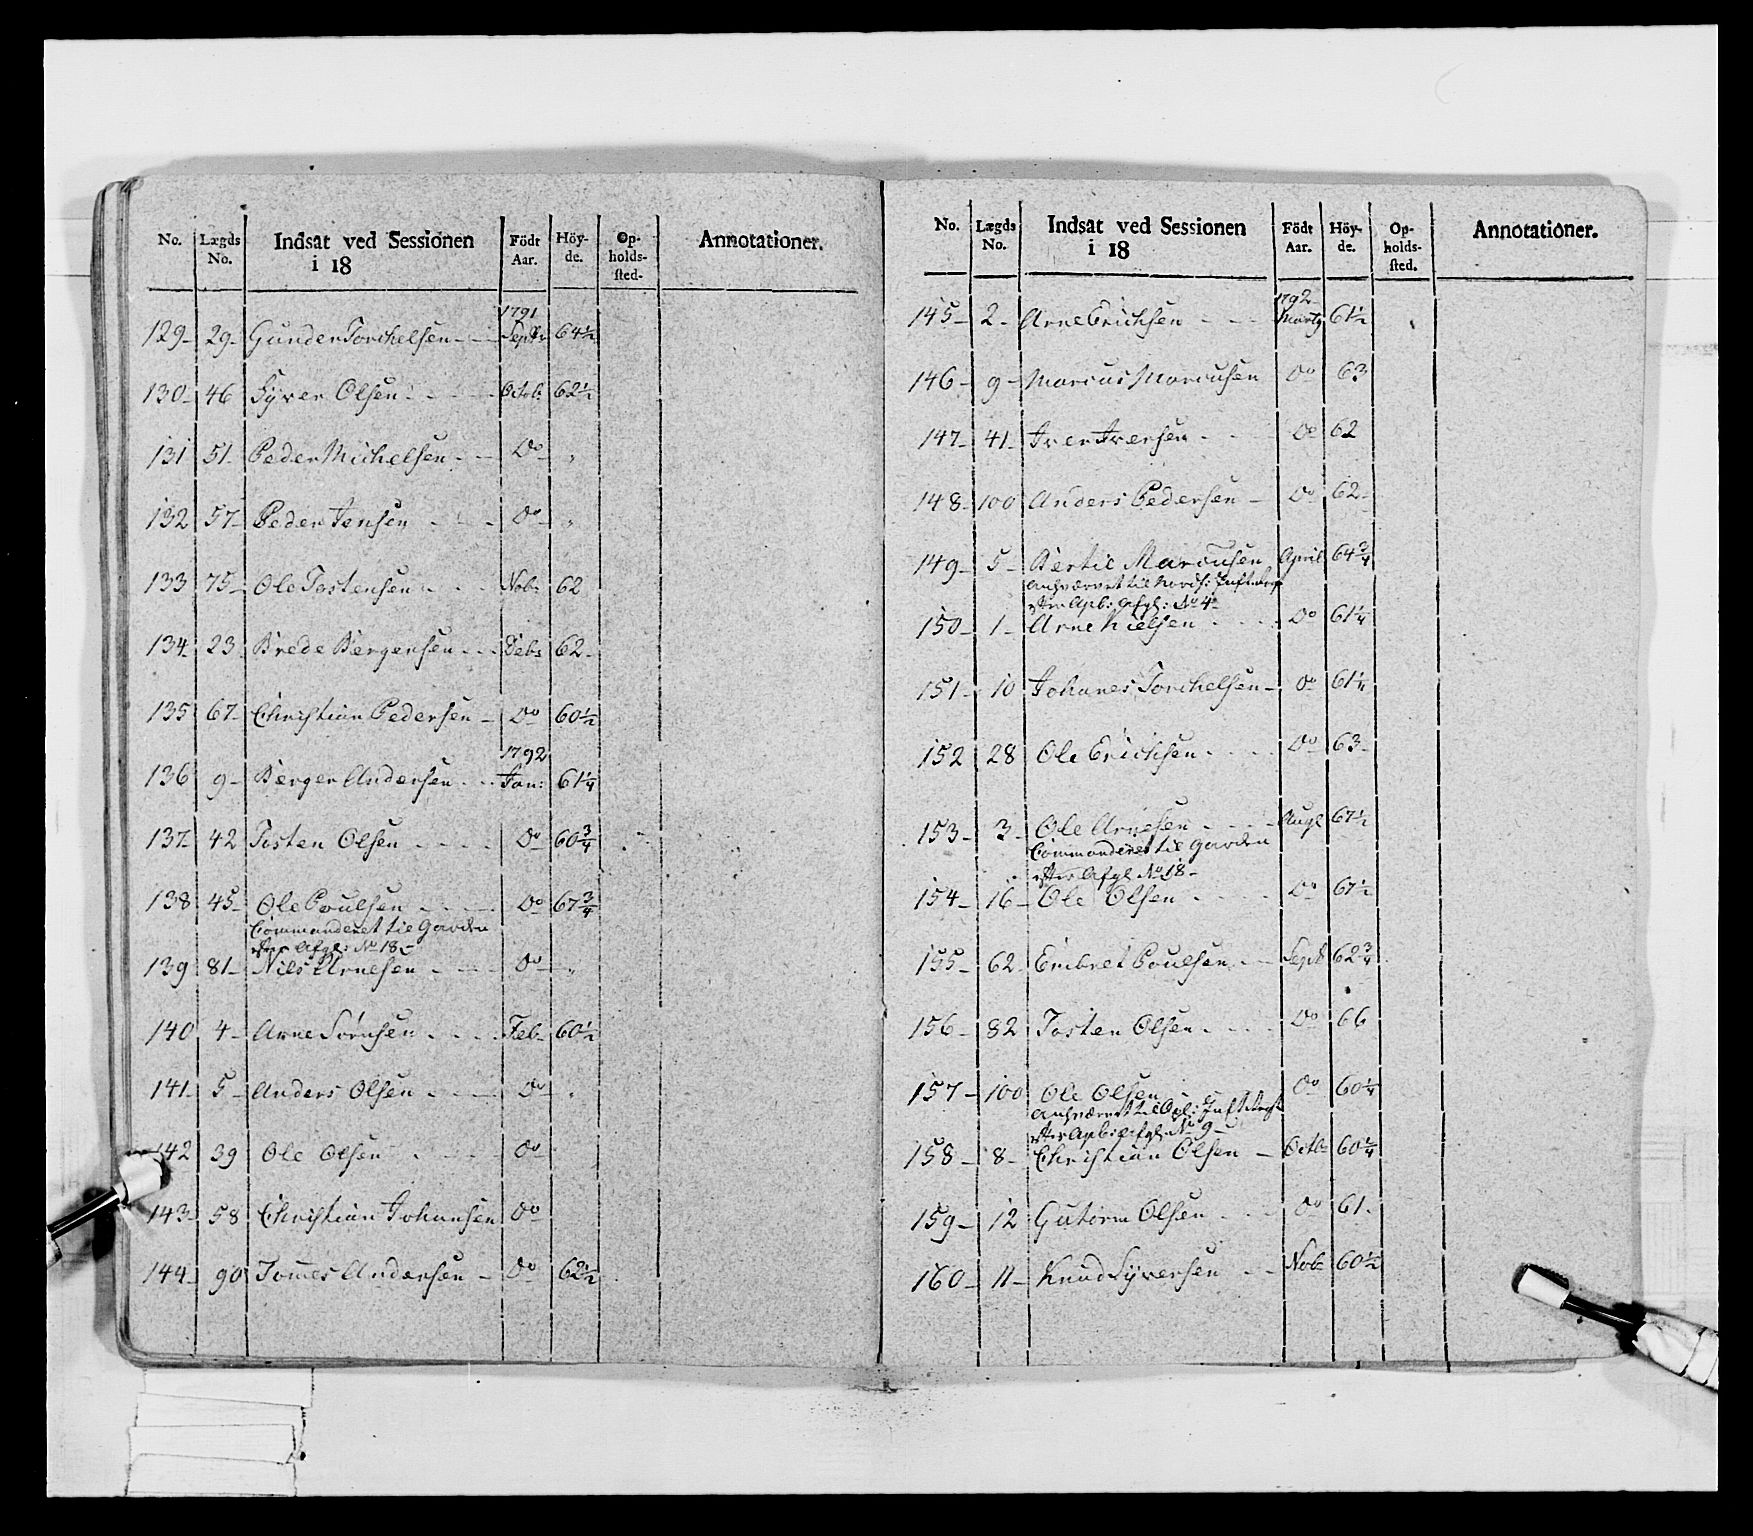 No. Lægds No. Indsat ved Sessionen i 18 Födt Aar. Höyde. Opholdssted. Annotationer.
1791
129 - 29 - Gunder Torchelsen - - Septr 64½
130 - 46 Syver Olsen - - - Octob: 62½
131 51 - Peder Michelsen - - Do „
132 57 - Peder Jensen - - - Do „
133 75 - Ole Tostensen - - - Nobr 62
134 - 23 - Brede Bergersen - - - Debr 62 -
135 67 - Christian Pedersen - Do 60½
1792
136 9 - Berger Andersen - - - Jan: 61¼
137 - 42 Tosten Olsen - - - - Do 60¾
138 45 - Ole Poulsen - - - Do 67¾
Commanderet til Garden
efter Afgl: No 18 -
139 81 - Nils Arnesen - - - Do „
140 4 - Arne Sörnsen - - - - Feb - 60½
141 - 5 - Anders Olsen - - - Do „
142 39 Ole Olsen - - - Do
143 - 58 Christian Johansen Do
144 - 90 Tomes Andersen - Do 62½
No. Lægds No. Indsat ved Sessionen i 18 Födt Aar. Höyde. Opholdssted. Annotationer.
1792
145 - 2 - Arne Erichsen - - - Marty 61½
146 - 9 - Marcus Marcusen Do 63
147 - 41 - Iver Iversen - - - Do 62
148 - 100 Anders Pedersen - Do 62 -
149 - 5 - Bertil Marcusen April 64¾
anhværvet til Nordf: Inft: Regt
efter Apb: Afgl: No 4 -
150 - 1 - Arne Nielsen - - - - Do 61¼
151 - 10 Johanes Torchelsen - Do 61¼
152 28 Ole Erichsen - - - Do 63 -
153 - 3 - Ole Arnesen - - - - Augt 67½
Commanderet til Garden
efter Afgl No 18 -
154 - 16 - Ole Olsen - - - - Do 67½
155 - 62 - Embret Poulsen - - Septr 62¾
156 - 82 Tosten Olsen - - - Do 66
157 - 100 Ole Olsen - Do 60¼
anhværvet til Opl: Inft: Regt
efter Apb: Afgl: No 9 -
158 - 8 - Christian Olsen - Octbr 60¼
159 - 12 Gutorm Olsen - - - Do 61 -
160 - 11 - Knud Syversen - - Nobr 60½